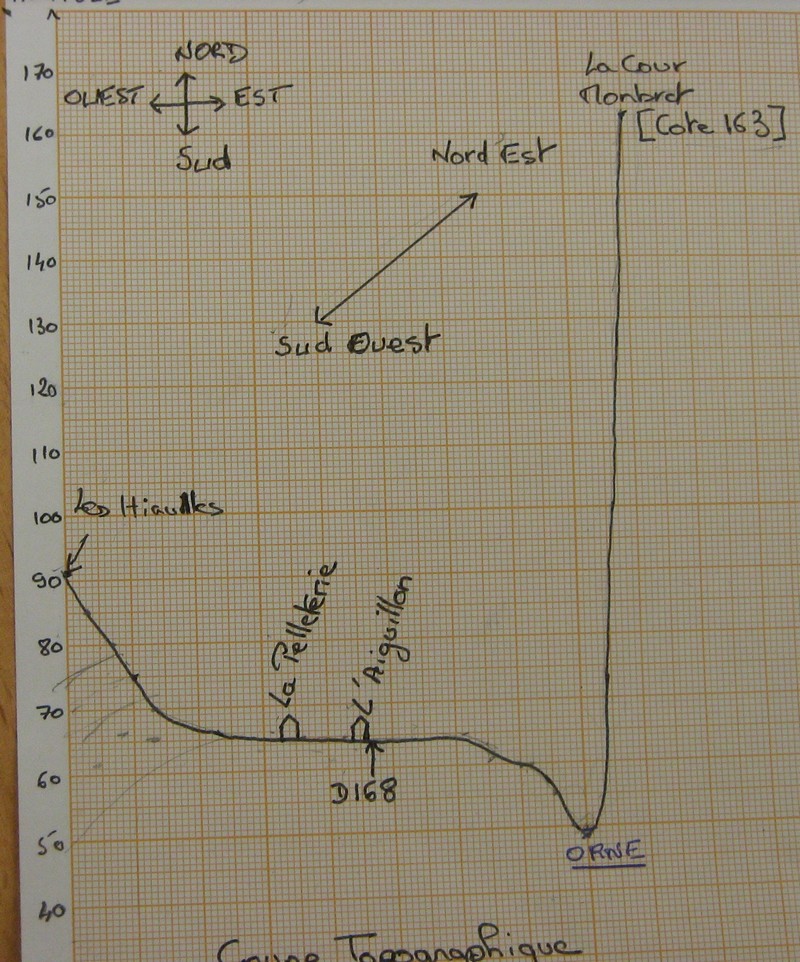 NORD
OUEST EST
Sud
La Cour
Monbret
[Cote 163]
Nord Est
Sud Ouest
170
160
150
140
130
120
110
100
90
80
70
60
50
40
La Pelleterie
L'Aiguillon
D168
ORNE
Coupe Topographique